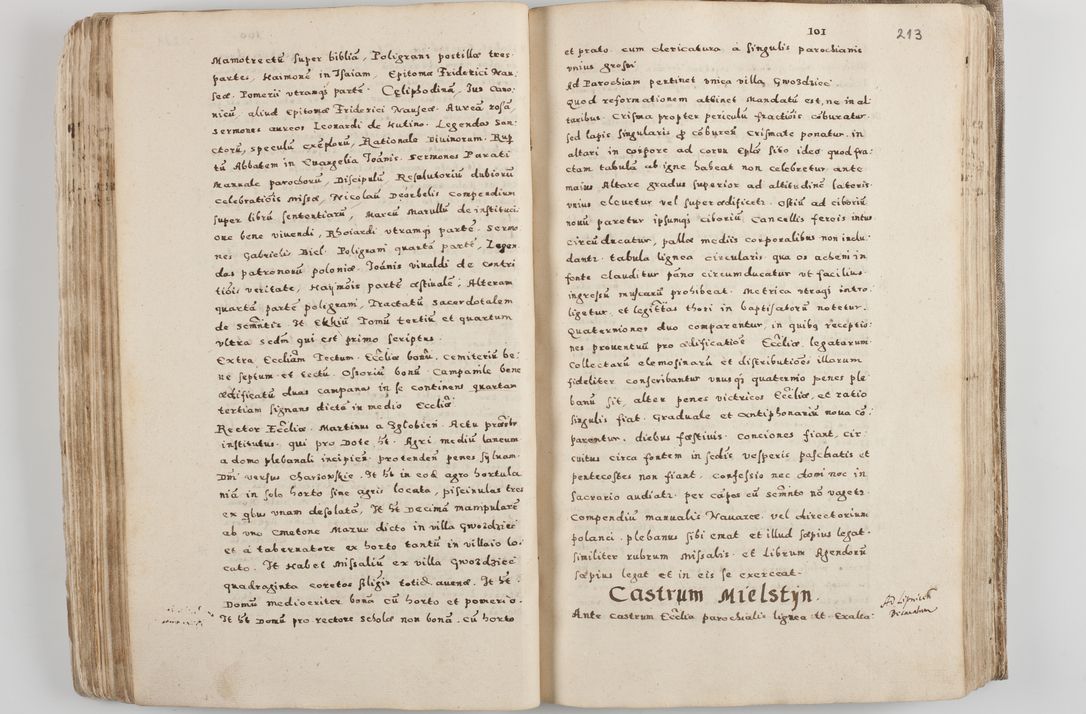 Mamotrectū super bibliā, Poligrani postillæ tres
partes, Haimonē in Isaiam, Epitomæ Friderici Nau:
seæ. Pomerii vtramqȝ partē. Celiphodinā, Ius Cano:
nicū, aliud epitomæ Friderici Nauseæ. Aureā rosā,
sermones aureos Leonardi de Hutino. Legendas San:
ctorū, speculū exēplorū, Rationale Diuinorum. Rup
tū Abbatem in Euangelia Ioānis. sermones Parati
Manuale parochorū, Discipulū Resolutoriū dubiorū
celebratiōis Missæ, Nicolaū Deorbelis compendium
super librū sententiarū, Marcū Marullū de instituci:
one bene viuendi, Rhoiardi vtramqȝ partē. Sermo:
nes Gabrielis Biel. Poligrani quartā partē, Legen:
das patronorū poloniæ. Ioānis viualdi de contri
tiōis veritate, Haymōis partē æstiualē, Alteram
quartā partē poligram, Tractatū sacerdotalem
de semētis. It Ekkiū Tomū tertiū et quartum
vltra secdm qui est primo scriptus.
Extra Eccliam Tectum. Eccliæ bonū. cemiteriū be:
ne septum et tectū. Ossoriū bonū Campanile bene
ædificatū duas campanas in se continens quartam
tertiam signans dictā in medio Eccliæ.
Rector Eccliæ. Martinus a Zglobień. Actu præsbr
institutus. qui pro Dote ht. Agri mediū laneum
a domo plebanali incipień protendeń penes syluam.
Dni versus Charzowskie. It ht in eod agro hortula
niā in solo horto sine agris locata, piscinulas tres
ex qbus vnam desolatā, It ht Decimā manipularē
ab vno cmetone Mazur dicto in villa Gwozdziec
et a tabernatore ex horto tantū in villaio lo:
cato. It Habet Missaliū ex villa Gwozdziec
quadraginta coretos siligis totid auenæ. It ht.
Domū mediocriter bonā cū horto et pomerio.
It ht Domū pro rectore scholæ non bonā. cū horto
101
213
et prato. cum clericatura a singulis parochianis
vnius grossi
Ad Parochiam pertinet vnica villa, Gwozdziec
Quod reformationem attinet Mandatū est, ne in al:
taribus. Crisma propter periculū fractiōis cōburatur.
sed lapis singularis ꝓ cōburen̄ crismate ponatur. in
altari in corpore ad cornu Eplæ sito ideo quod fra:
ctam tabulā ab igne habeat non celebretur ante
maius. Altare gradus superior ad altitudinē lateris
vnius eleuetur vel superædificetr. Ostiū ad ciboriū
nouū paretur ipsumqȝ ciboriū. Cancellis ferris intus
circūducatur, pallæ mediis corporalibus non inclu:
dantr. tabula lignea circularis qua os acheni in
fonte clauditur pāno circumducatur vt facilius
ingressū muscarū prohibeat. Metrica vtraqȝ intro:
ligetur. et legitīas thori in baptisatorū notetur.
Quaterniones duo comparentur, in quibȝ receptio:
nes prouentuū pro ædificatiōe Eccliæ. legatarum
collectarū elemosinarū et distributiōes illarum
fideliter conscribantur vnusqȝ quaternio penes ple
banū sit, alter penes victricos Eccliæ, et ratio
singulis fiat. Graduale et Antiphonariū noua cō:
parentur. diebus fæstiuis. conciones fiant, cir:
cuitus circa fontem in sedis vesperis paschatis et
pentecostes non fiant. confessio nec domi nec in
sacrario audiatr. per cāpos cū semēto nō vagetr.
compendiū manualis Nauarræ vel directorium
polanci. plebanus sibi emat et illud sæpius legat.
similiter rubrum Missalis. et Librum Agendorū
sæpius legat et in eis se exerceat.
Castrum Mielstyn.
Ante Castrum Ecclia parochialis lignea tt. Exalta:
Ad Lipnicen
Decanatum